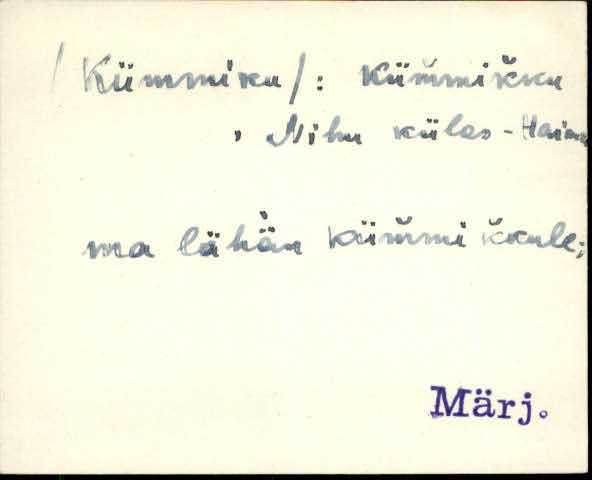 /Kümmiku/: küm̆mik̆ku
, Nihu külas - Haim
ma lähän küm̆mik̆kule;
Märj.